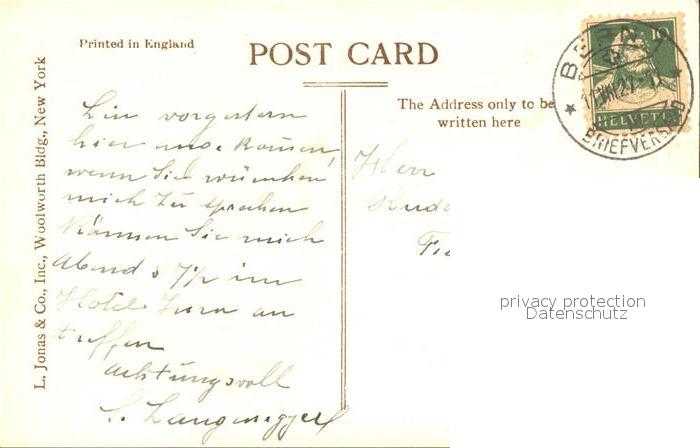 Printed in England
POST CARD
The Address only to be
written here
L. Jonas & Co., Inc., Woolworth Bldg., New York
Bin vorgestern
hier angekommen,
wenn Sie wünschen
mich zu sprechen
können Sie mich
Abends 7½ im
Hotel an
treffen
Achtungsvoll
Langenegger
Herr
BERN
BRIEFVERSAND
10
HELVETIA
privacy protection
Datenschutz